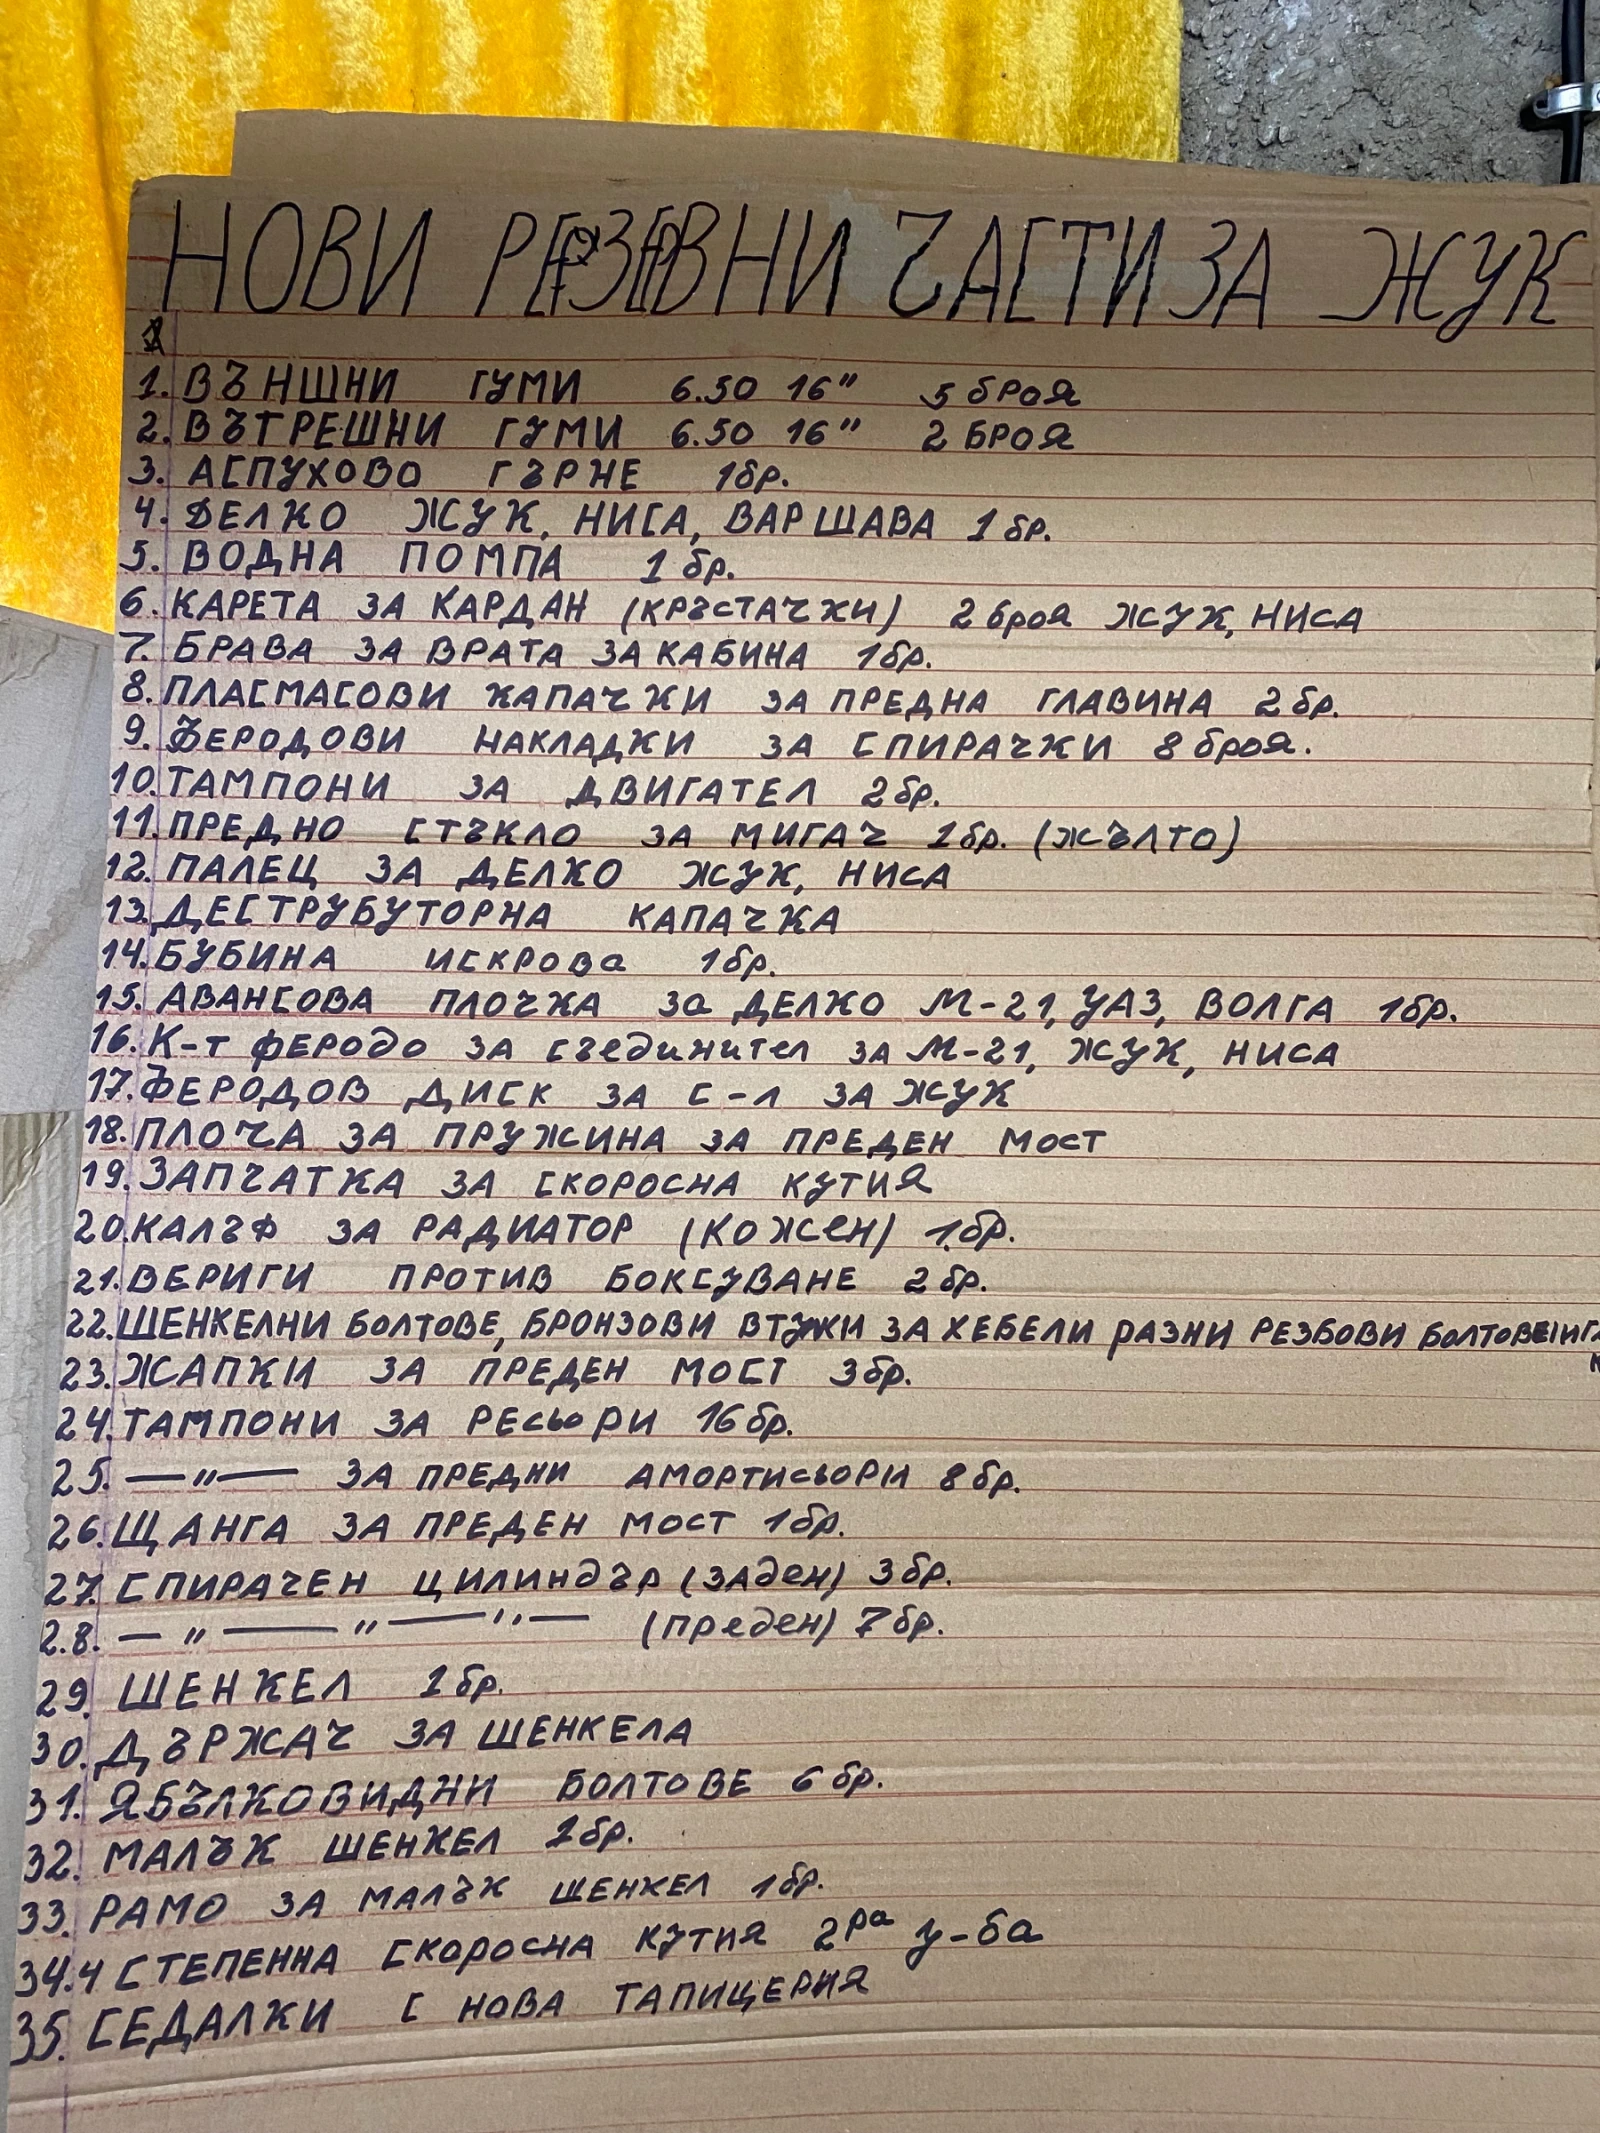 НОВИ РЕЗЕРВНИ ЧАСТИ ЗА ЖУК
1. ВЪНШНИ ГУМИ 6.50 16" 5 броя
2. ВЪТРЕШНИ ГУМИ 6.50 16" 2 БРОЯ
3. АСПУХОВО ГЪРНЕ 1бр.
4. ДЕЛКО ЖУК, НИСА, ВАРШАВА 1 бр.
5. ВОДНА ПОМПА 1 бр.
6. КАРЕТА ЗА КАРДАН (КРЪСТАЧКИ) 2 броя ЖУК, НИСА
7. БРАВА ЗА ВРАТА ЗА КАБИНА 1бр.
8. ПЛАСМАСОВИ КАПАЧКИ ЗА ПРЕДНА ГЛАВИНА 2 бр.
9. ФЕРОДОВИ НАКЛАДКИ ЗА СПИРАЧКИ 8 броя.
10. ТАМПОНИ ЗА ДВИГАТЕЛ 2бр.
11. ПРЕДНО СТЪКЛО ЗА МИГАЧ 1бр. (ЖЪЛТО)
12. ПАЛЕЦ ЗА ДЕЛКО ЖУК, НИСА
13. ДЕСТРУБУТОРНА КАПАЧКА
14. БУБИНА ИСКРОВа 1бр.
15. АВАНСОВА ПЛОЧКА За ДЕЛКО М-21, УАЗ, ВОЛГА 1бр.
16. К-т ФЕРОДО ЗА съединител ЗА М-21, ЖУК, НИСА
17. ФЕРОДОВ ДИСК ЗА С-Л ЗА ЖУК
18. ПЛОЧА ЗА ПРУЖИНА ЗА ПРЕДЕН МОСТ
19. ЗАПЧАТКА ЗА СКОРОСНА КУТИЯ
20. КАЛЪФ ЗА РАДИАТОР (КОЖЕН) 1.бр.
21. ВЕРИГИ ПРОТИВ БОКСУВАНЕ 2 бр.
22. ШЕНКЕЛНИ БОЛТОВЕ, БРОНЗОВИ ВТУЖИ ЗА ХЕБЕЛИ РАЗНИ РЕЗБОВИ БОЛТОВЕ
23. ЖАПКИ ЗА ПРЕДЕН МОСТ 3бр.
24. ТАМПОНИ ЗА РЕСЬОРИ 16 бр.
25. —"— ЗА ПРЕДНИ АМОРТИСЬОРИ 8 бр.
26. ЩАНГА ЗА ПРЕДЕН МОСТ 1бр.
27. СПИРАЧЕН ЦИЛИНДЪР (ЗАДЕН) 3бр.
2.8. —"—"—"— (ПРЕДЕН) 7бр.
29. ШЕНКЕЛ 1 бр.
30. ДЪРЖАЧ ЗА ШЕНКЕЛА
31. ЯБЪЛКОВИДНИ БОЛТОВЕ 6 бр.
32. МАЛЪК ШЕНКЕЛ 1бр.
33. РАМО ЗА МАЛЪК ШЕНКЕЛ 1бр.
34. 4 СТЕПЕННА СКОРОСНА КУТИЯ 2ра у-ба
35. СЕДАЛКИ С НОВА ТАПИЦЕРИЯ